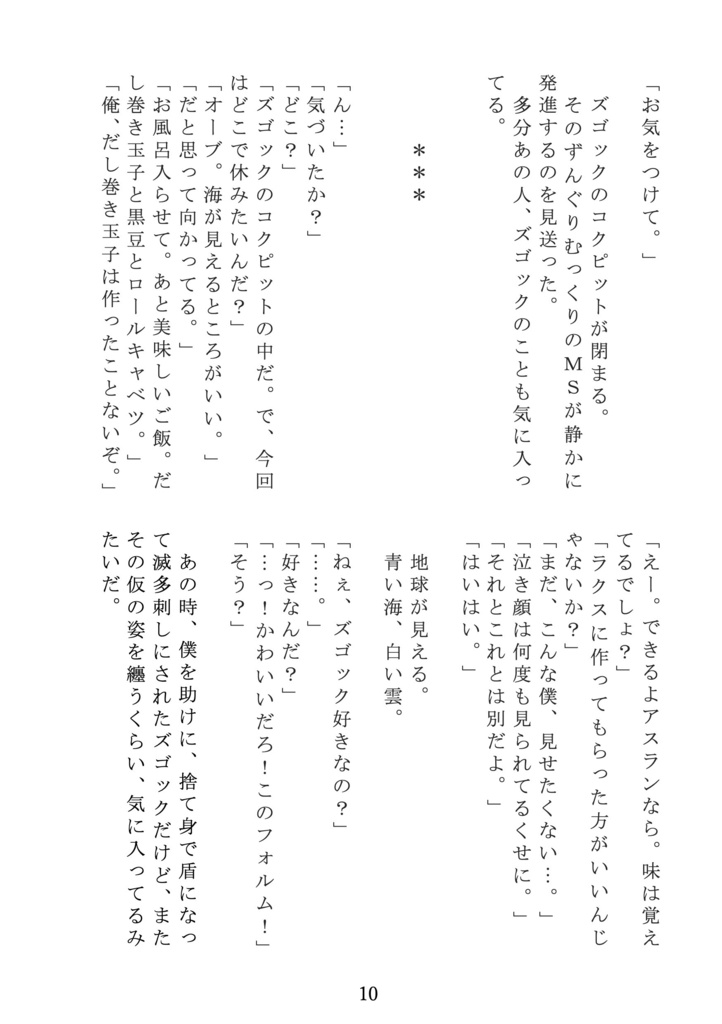 「お気をつけて。」
ズゴックのコクピットが閉まる。
そのずんぐりむっくりのＭＳが静かに
発進するのを見送った。
多分あの人、ズゴックのことも気に入っ
てる。
＊＊＊
「ん…」
「気づいたか？」
「どこ？」
「ズゴックのコクピットの中だ。で、今回
はどこで休みたいんだ？」
「オーブ。海が見えるところがいい。」
「だと思って向かってる。」
「お風呂入らせて。あと美味しいご飯。だ
し巻き玉子と黒豆とロールキャベツ。」
「俺、だし巻き玉子は作ったことないぞ。」
「えー。できるよアスランなら。味は覚え
てるでしょ？」
「ラクスに作ってもらった方がいいんじ
ゃないか？」
「まだ、こんな僕、見せたくない…。」
「泣き顔は何度も見られてるくせに。」
「それとこれとは別だよ。」
「はいはい。」
地球が見える。
青い海、白い雲。
「ねぇ、ズゴック好きなの？」
「……。」
「好きなんだ？」
「…っ！かわいいだろ！このフォルム！」
「そう？」
あの時、僕を助けに、捨て身で盾になっ
て滅多刺しにされたズゴックだけど、また
その仮の姿を纏うくらい、気に入ってるみ
たいだ。
10